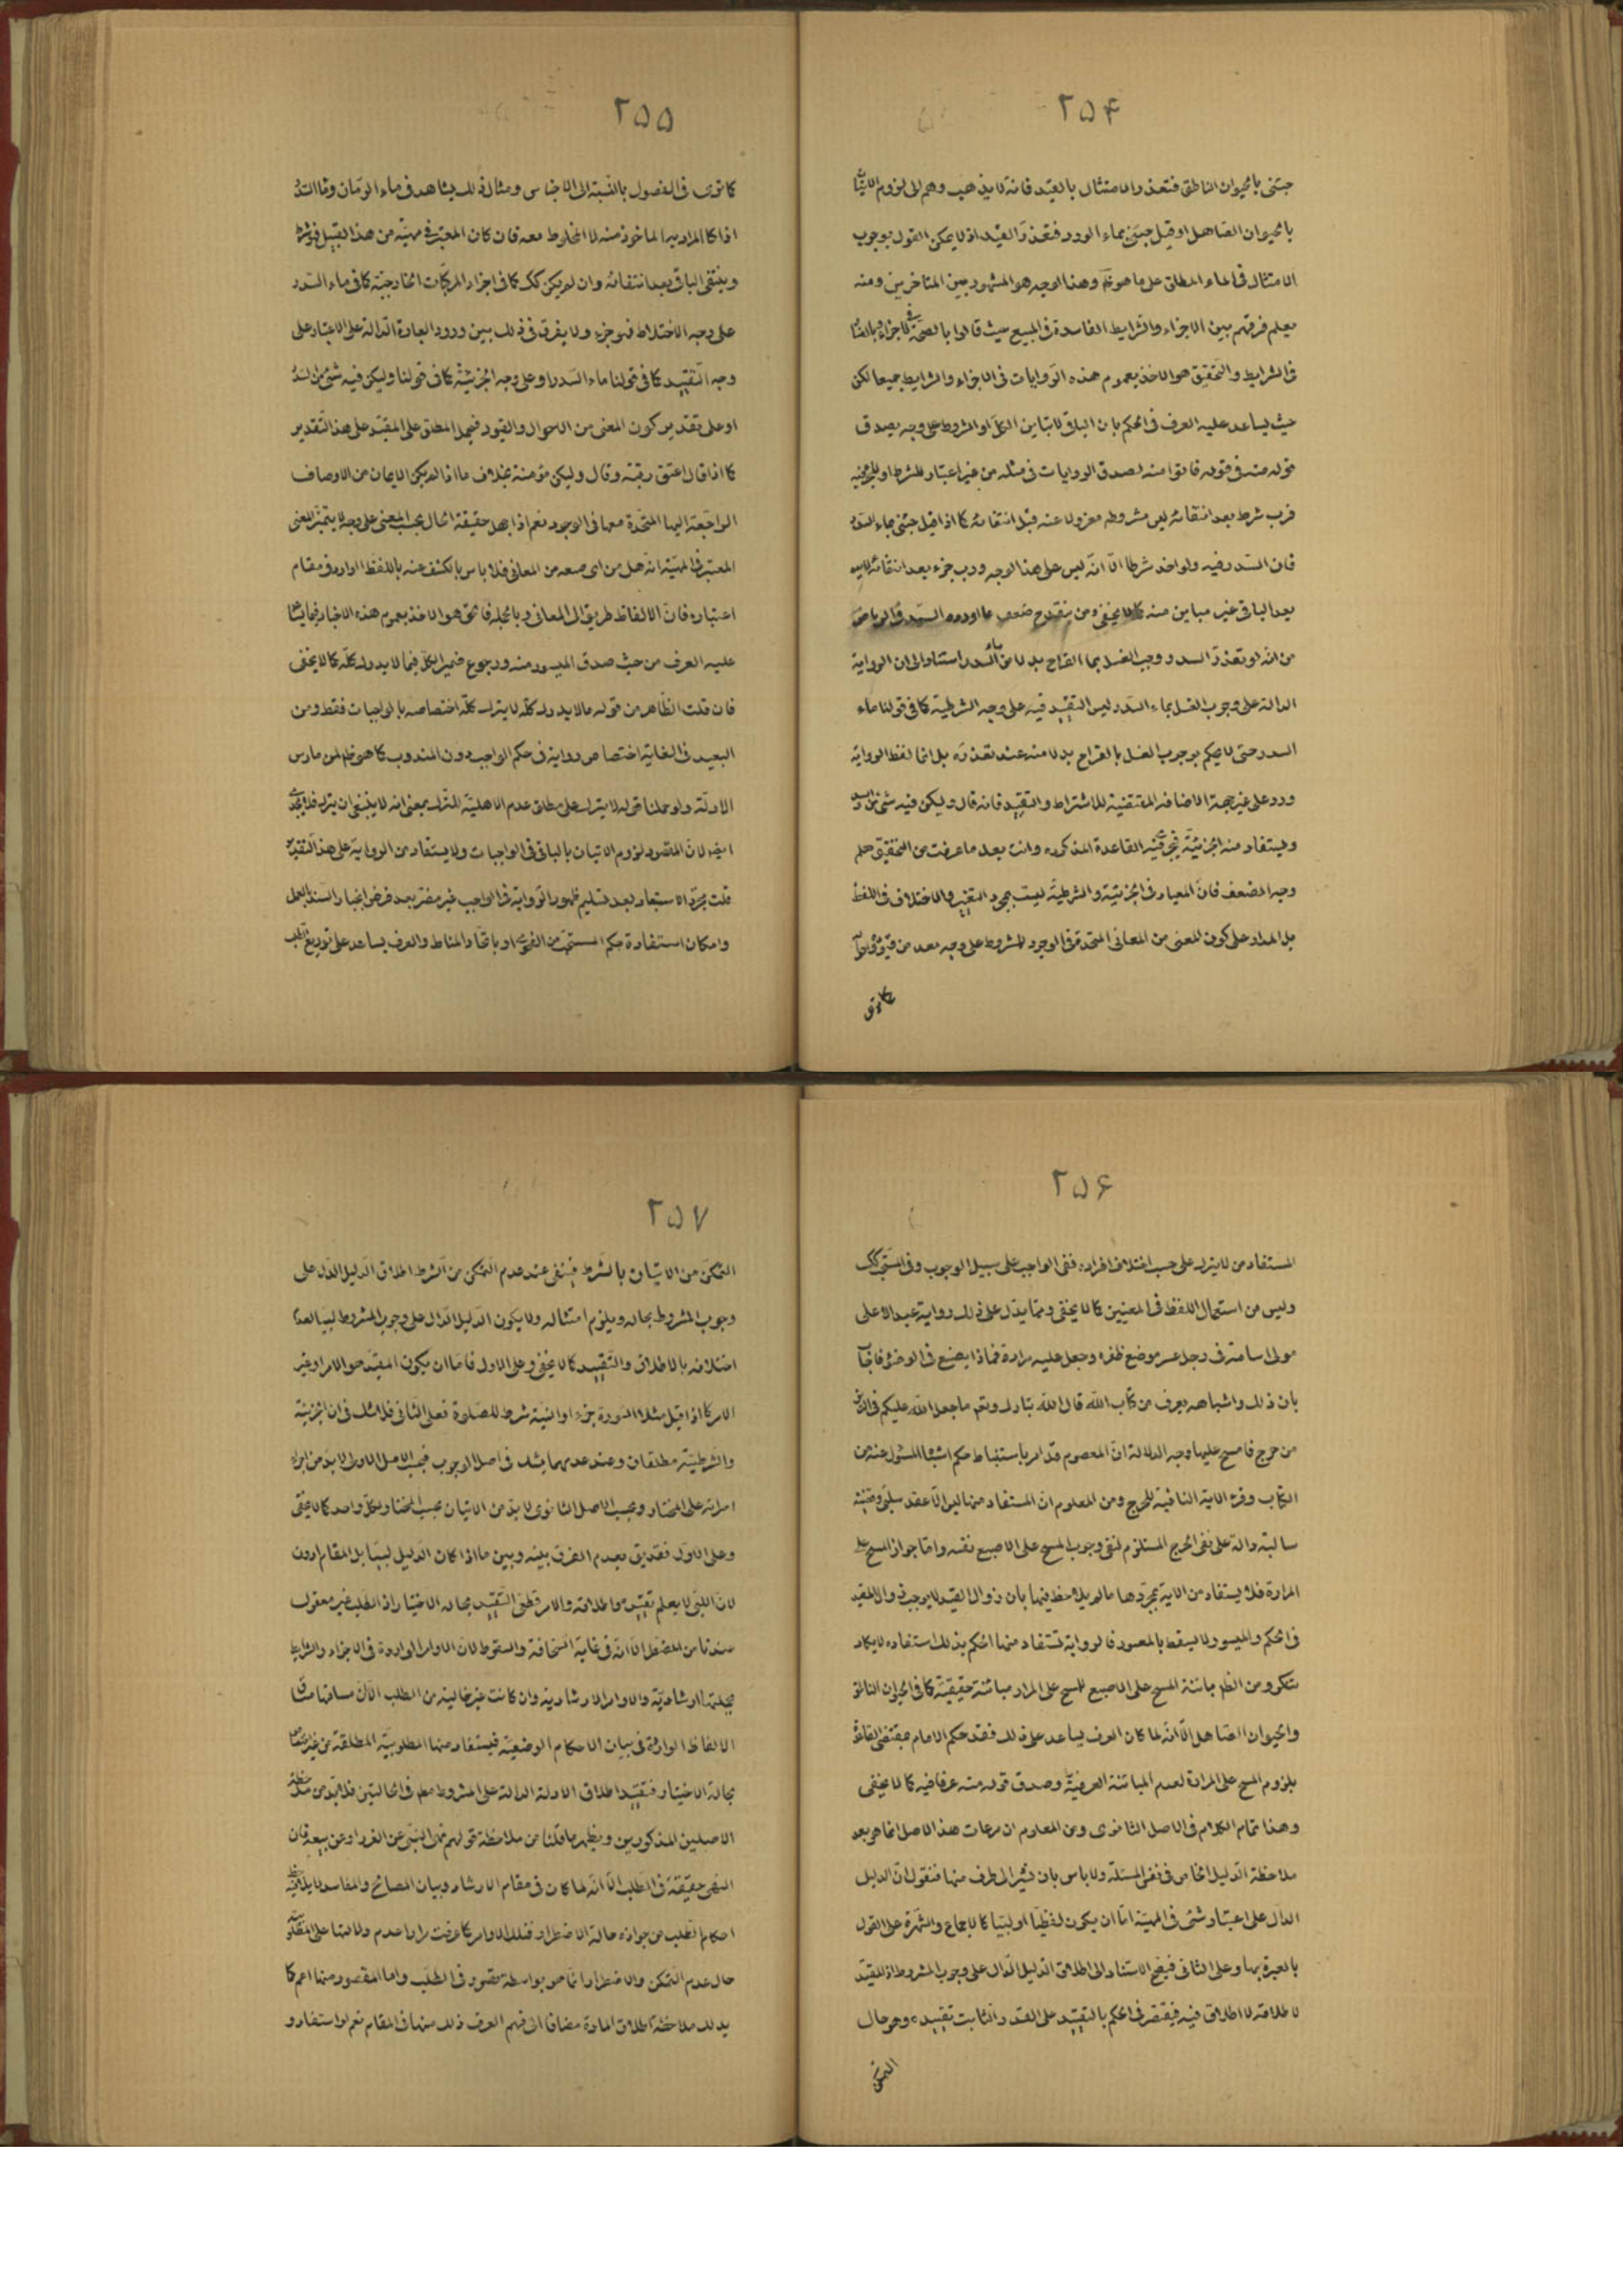 ۲۵۴
جئنى بالحيوان الناطق فتعذر الامتثال بالقيد فانه لا يذهب وهم الى لزوم الاتيان
بالحيوان الصاهل او قيل جئنى بماء الورد فتعذر القيد اذ لا يمكن القول بوجوب
الامتثال فى الماء المطلق على ما هو ظ وهذا الوجه هو المشهور بين المتاخرين ومنه
يعلم فرقهم بين الاجزاء والشرايط الفاسدة فى المبيع حيث قالوا بالصحة فى الاجزاء
فى الشرايط والتحقيق هو الاخذ بعموم هذه الروايات فى الاجزاء والشرايط جميعا لكن
حيث يساعد عليه العرف فى الحكم بان الباقى لا تباين الكل او المشروط على وجه يصدق
قوله منه فى قوله فاتوا منه لصدق الروايات فى مثله من غير اعتبار للشرط او الجزئية
فرب شرط بعد انتفائه ليس مشروطه معزولا عنه قبل انتفائه كما اذا قيل جئنى بماء السدر
فان السدر فيه ولو اخذ شرطا الا انه ليس على هذا الوجه ورب جزء بعد انتفائه
يعد الباقى غير مباين منه كما لا يخفى ومن ينقدح ضعف ما اورده السيد فى الرياض
من انه لو تعذر السدر وجب الغسل بماء القراح بدلا من ماء السدر استنادا الى ان الرواية
الدالة على وجوب الغسل بماء السدر ليس التقييد فيه على وجه الشرطية كما فى قولنا ماء
السدر حتى لا يحكم بوجوب الغسل بالقراح بدلا منه عند تعذره بل انما لفظ الرواية
ورد على غير جهة الاضافة المقتضية للاشتراط والتقييد فانه قال وليكن فيه شئ من السدر
ويستفاد منه الجزئية فيجرى فيه القاعدة المذكورة وانت بعد ما عرفت من التحقيق تعلم
وجه الضعف فان المعيار فى الجزئية والشرطية ليست بمجرد التغيير والاختلاف فى اللفظ
بل المدار على كون المعنى من المعانى المتحدة فى الوجود للمشروط على وجه يعد من
كما ترى
۲۵۵
كما ترى فى الفصول بالنسبة الى الاجناس ومثال ذلك يشاهد فى ماء الرمان وماء السدر
اذا كان المراد به الماخوذ منه لا المخلوط معه فان كان المعتبر فى مهيته من هذا القبيل فهو شرط
وينتفى الباقى بعد انتفائه وان لم يكن كك كما فى اجزاء المركبات الخارجية كما فى ماء السدر
على وجه الاختلاط فهو جزء ولا يفرق فى ذلك بين ورود العبارة الدالة على الاعتبار على
وجه التقييد كما فى قولنا ماء السدر او على وجه الجزئية كما فى قولنا وليكن فيه شئ من السدر
او على تقدير كون المعنى من الاحوال والقيود فيحمل المطلق على المقيد على هذا التقدير
كما اذا قال اعتق رقبة وقال وليكن مؤمنة بخلاف ما اذا لم يكن الايمان من الاوصاف
الراجعة اليها المتحدة معها فى الوجود نعم اذا جهل حقيقة الحال بحسب المعنى على وجه لا يتميز المعنى
المعتبر فى المهية انه هل من اى صعد من المعانى فلا باس بالكشف عنه باللفظ الوارد فى مقام
اعتباره فان الالفاظ طريق الى المعانى وبالجملة فالحق هو الاخذ بعموم هذه الاخبار فيما يساعد
عليه العرف من حيث صدق الميسور منه ورجوع ضمير الكل فيما لا يدرك كله كما لا يخفى
فان قلت الظاهر من قوله ما لا يدرك كله لا يترك كله اختصاصه بالواجبات فقط ومن
البعيد فى الغاية اختصاص رواية فى حكم الواجب دون المندوب كما هو ظ لمن مارس
الادلة ولو حملنا قوله لا يترك على مطلق عدم الاهلية للترك بمعنى انه لا ينبغى ان يترك فلا يجدى
ايضا لان المقصود لزوم الاتيان بالباقى فى الواجبات ولا يستفاد من الرواية على هذا التقدير
قلت مجرد الاستبعاد بعد تسليم ظهور الرواية فى الواجب غير مضر بعد فرض انجبار السند بالعمل
وامكان استفادة حكم المستحب من الفحوى او باتحاد المناط والعرف يساعد على توزيع الطلب
۲۵۶
المستفاد من لا يترك على حسب اختلاف افراده ففى الواجب على سبيل الوجوب وفى المستحب كك
وليس من استعمال اللفظ فى المعنيين كما لا يخفى ومما يدل على ذلك رواية عبد الاعلى
مولى ال سام فى رجل عسر موضع ظفره وجعل عليه مرارة فماذا يصنع فى الوضوء فاجاب
بان ذلك واشباهه يعرف من كتاب الله قال الله تبارك وتعم ما جعل الله عليكم فى الدين
من حرج فامسح عليها وجه الدلالة ان المعصوم قد امر باستنباط حكم اشباه المسئول عنه من
الكتاب وقرء الاية النافية للحرج ومن المعلوم ان المستفاد منها ليس الا عقد سلبى وقضية
سالبة دالة على نفى الحرج المستلزم لنفى وجوب المسح على الاصبع نفسه واما جواز المسح على
المرارة فلا يستفاد من الاية بمجردها ما لم يلاحظ فيها بان زوال القيد لا يوجب زوال المقيد
فى الحكم والميسور لا يسقط بالمعسور فالرواية تستفاد منها الحكم بذلك استفاده لا يكاد
تنكر ومن الظ مباينة المسح على الاصبع للمسح على المرارة مباينة حقيقية كما فى الحيوان الناطق
والحيوان الصاهل الا انه لما كان العرف يساعد على ذلك فقد حكم الامام بمقتضى القاعدة
بلزوم المسح على المرارة لعدم المباينة العرفية وصدق قوله منه عرفا فيه كما لا يخفى
وهذا تمام الكلام فى الاصل الثانوى ومن المعلوم ان مرعات هذا الاصل انما هو بعد
ملاحظة الدليل الخاص فى نفس المسئلة ولا باس بان نشير الى طرف منها فنقول ان الدليل
الدال على اعتبار شئ فى المهية اما ان يكون لفظيا او لبيا كالاجماع والشهرة على القول
بالعبرة بها وعلى الثانى فيصح الاستناد الى اطلاق الدليل الدال على وجوب المشروط اذ المقيد
لاطلاقه لا اطلاق فيه فيقتصر فى الحكم بالتقييد على القدر الثابت تقييده وهو حال
التمكن
۲۵۷
التمكن من الاتيان بالشرط فينفى عند عدم التمكن من الشرط اطلاق الدليل الدال على
وجوب المشروط بحاله ويلزم امتثاله ولا يكون الدليل الدال على وجوب المشروط لبيا لعدم
اختلافه بالاطلاق والتقييد كما لا يخفى وعلى الاول فاما ان يكون المقيد هو الامر او غير
الامر كما اذا قيل مثلا السورة جزء او النية شرط للصلوة فعلى الثانى فلا شك فى ان الجزئية
والشرطية مطلقان وعند عدمهما يشك فى اصل الوجوب فبحسب الاصل الاولى لا بد من اجراء
البرائة على المختار وبحسب الاصل الثانوى لا بد من الاتيان بحسب المختار ولكل واحد كما لا يخفى
وعلى الاول فقد يق بعدم الفرق بينه وبين ما اذا كان الدليل لبيا بل المقام ادون
لان اللبى لا يعلم تقييده واطلاقه والامر قطعى التقييد بحالة الاختيار اذ الطلب غير معقول
صدقا من المضطر الا انه فى غاية السخافة والسقوط لان الاوامر الواردة فى الاجزاء والشرايط
بجملتها ارشادية والاوامر الارشادية وان كانت غير خالية من الطلب الا ان مساقها مساق
الالفاظ الواردة فى بيان الاحكام الوضعية فيستفاد منها المطلوبية المطلقة من غير اختصاص
بحالة الاختيار فتقييد اطلاق الادلة الدالة على المشروط معلم فى الحالتين فلا بد من ملاحظة
الاصلين المذكورين ويظهر ما قلنا من ملاحظة قولهم نهى النبى عن الغرر او عن بيعه فان
النهى حقيقة فى الطلب الا انه لما كان فى مقام الارشاد وبيان المصالح والمفاسد لا يلاحظ فيه
احكام الطلب من جوازه حالة الاضطرار فتلك الاوامر كما عرفت مرارا عدم دلالتها على المطلوبية
حال عدم التمكن والاضطرار انما هو بواسطة قصور فى الطلب واما المقصود منها اعم كما
يدلك ملاحظة اطلاق المادة مضافا الى فهم العرف ذلك منها فى المقام نعم لو استفاد و